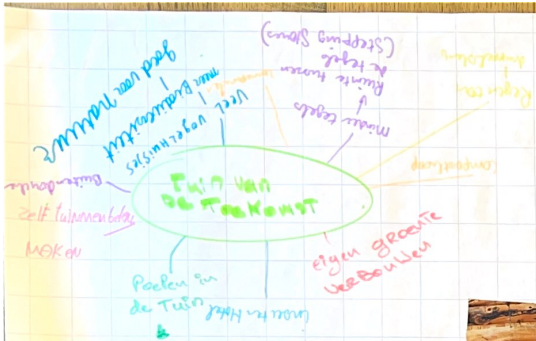 Tuin van
de Toekomst
goed voor natuur
meer Biodiversiteit
Veel
vogelhuisjes
Minder tegels
Ruimte tussen
de tegels
(Stepping Stones)
Regenton
composthoop
eigen groente
verbouwen
insectenhotel
Poelen in
de Tuin
Zelf tuinmeubelen
MAKEN
Buitendouche